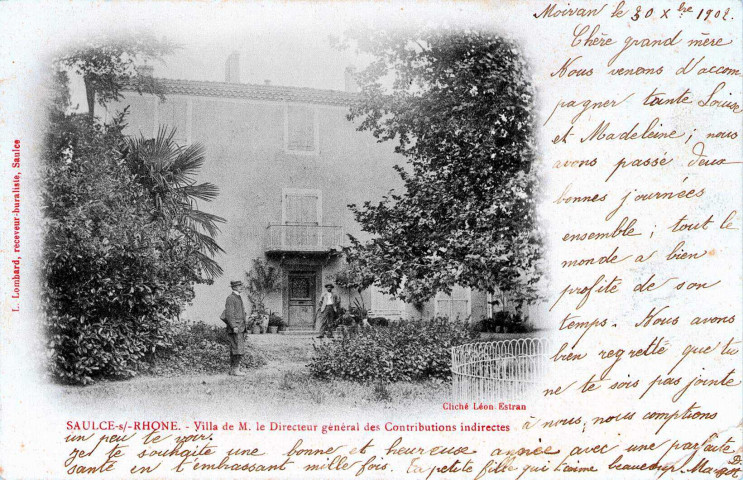 Moiran le 30 Xbre 1902.
Chère grand mère
Nous venons d'accom
pagner tante Louise
et Madeleine ; nous
avons passé deux
bonnes journées
ensemble ; tout le
monde a bien
profité de son
temps. Nous avons
bien regretté que tu
ne te sois pas jointe
à nous, nous comptions
un peu te voir.
Je te souhaite une bonne et heureuse année avec une parfaite
santé en t'embrassant mille fois. Ta petite fille qui t'aime beaucoup. Margot
L. Lombard, receveur-buraliste, Saulce
Cliché Léon Estran
SAULCE-s/-RHONE. - Villa de M. le Directeur général des Contributions indirectes